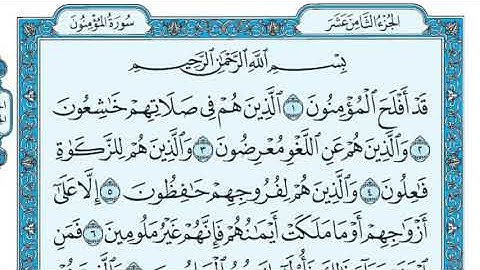 الجُزءُ الثَّامِنَ عَشَرَ
سُورَةُ المُؤْمِنُونَ
بِسْمِ اللَّهِ الرَّحْمَٰنِ الرَّحِيمِ
قَدْ أَفْلَحَ الْمُؤْمِنُونَ ١ الَّذِينَ هُمْ فِي صَلَاتِهِمْ خَاشِعُونَ
٢ وَالَّذِينَ هُمْ عَنِ اللَّغْوِ مُعْرِضُونَ ٣ وَالَّذِينَ هُمْ لِلزَّكَوٰةِ
فَاعِلُونَ ٤ وَالَّذِينَ هُمْ لِفُرُوجِهِمْ حَافِظُونَ ٥ إِلَّا عَلَىٰ
أَزْوَاجِهِمْ أَوْ مَا مَلَكَتْ أَيْمَانُهُمْ فَإِنَّهُمْ غَيْرُ مَلُومِينَ ٦ فَمَنِ